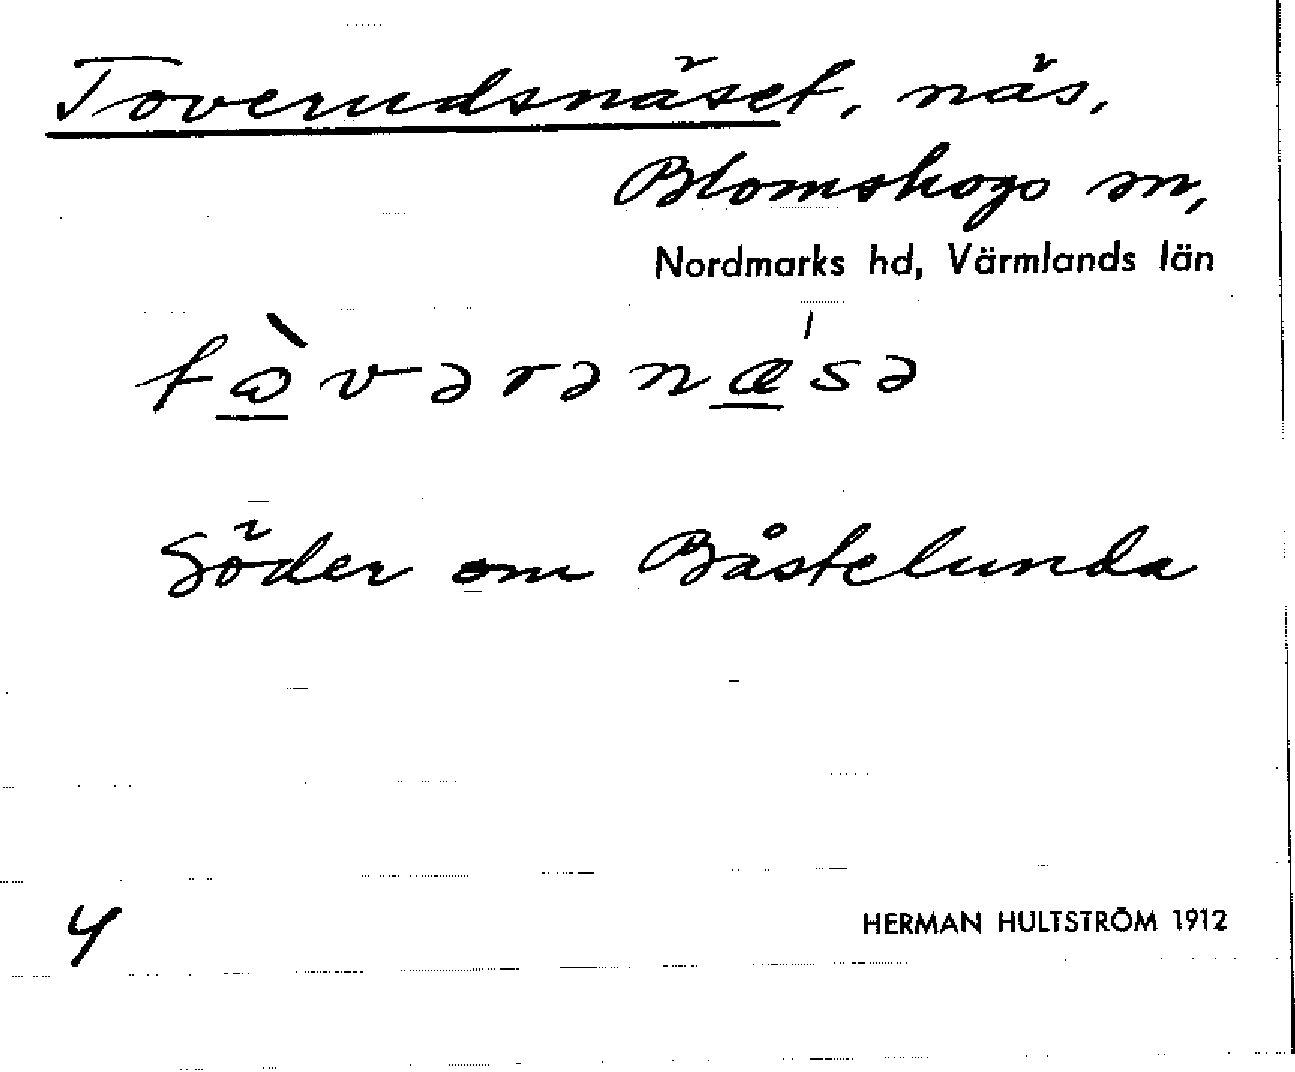 Toverudsnäset, näs,
Blomskogs sn,
Nordmarks hd, Värmlands län
tὼvərənæ´sə
Söder om Båstelunda
4
HERMAN HULTSTRÖM 1912